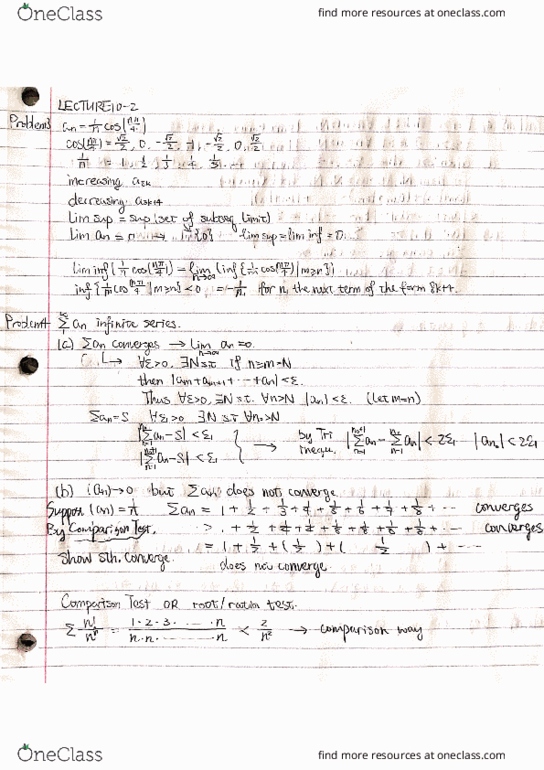 OneClass
find more resources at oneclass.com
LECTURE10-2
Problem3 an = 1/n cos(nπ/4)
cos(nπ/4) = √2/2, 0, -√2/2, -1, -√2/2, 0, √2/2
1/n = 1, 1/2, 1/3, 1/4, 1/5, ...
increasing a8k
decreasing a8k+4
Lim sup = sup (set of subseq limit)
Lim an = 0 → {0} lim sup = lim inf = 0.
Lim inf {1/n cos(nπ/4)} = lim n→∞ (inf {1/m cos(mπ/4) | m≥n})
inf {1/m cos mπ/4 | m≥n} < 0 = -1/n, for n, the next term of the form 8k+4.
Problem4 ∞Σ1 an infinite series.
(a) Σan converges → lim n→∞ an = 0.
↳ ∀ε>0, ∃N s.t. if n≥m>N
then |am+am+1+...+an| < ε.
Thus ∀ε>0, ∃N s.t. ∀n>N |an| < ε. (let m=n)
Σan=S ∀ε1>0 ∃N s.t. ∀n0>N
|Σan-S| < ε1
|Σan-S| < ε1 → by Tri inequ. |Σan - Σan| < 2ε1 |an0| < 2ε1
(b) (an)→0 but Σan does not converge
Suppose (an) = 1/n Σan = 1 + 1/2 + 1/3 + 1/4 + 1/5 + 1/6 + 1/7 + 1/8 + ... converges
By Comparison Test, > 1 + 1/2 + 1/4 + 1/4 + 1/8 + 1/8 + 1/8 + 1/8 + ... converges
= 1 + 1/2 + (1/2) + ( 1/2 ) + ...
Show sth. converge. does not converge.
Comparison Test OR root/ratio test.
Σ n!/nⁿ = 1·2·3· ... ·n / n·n· ... ·n < 2/n² → comparison way
OneClass
find more resources at oneclass.com